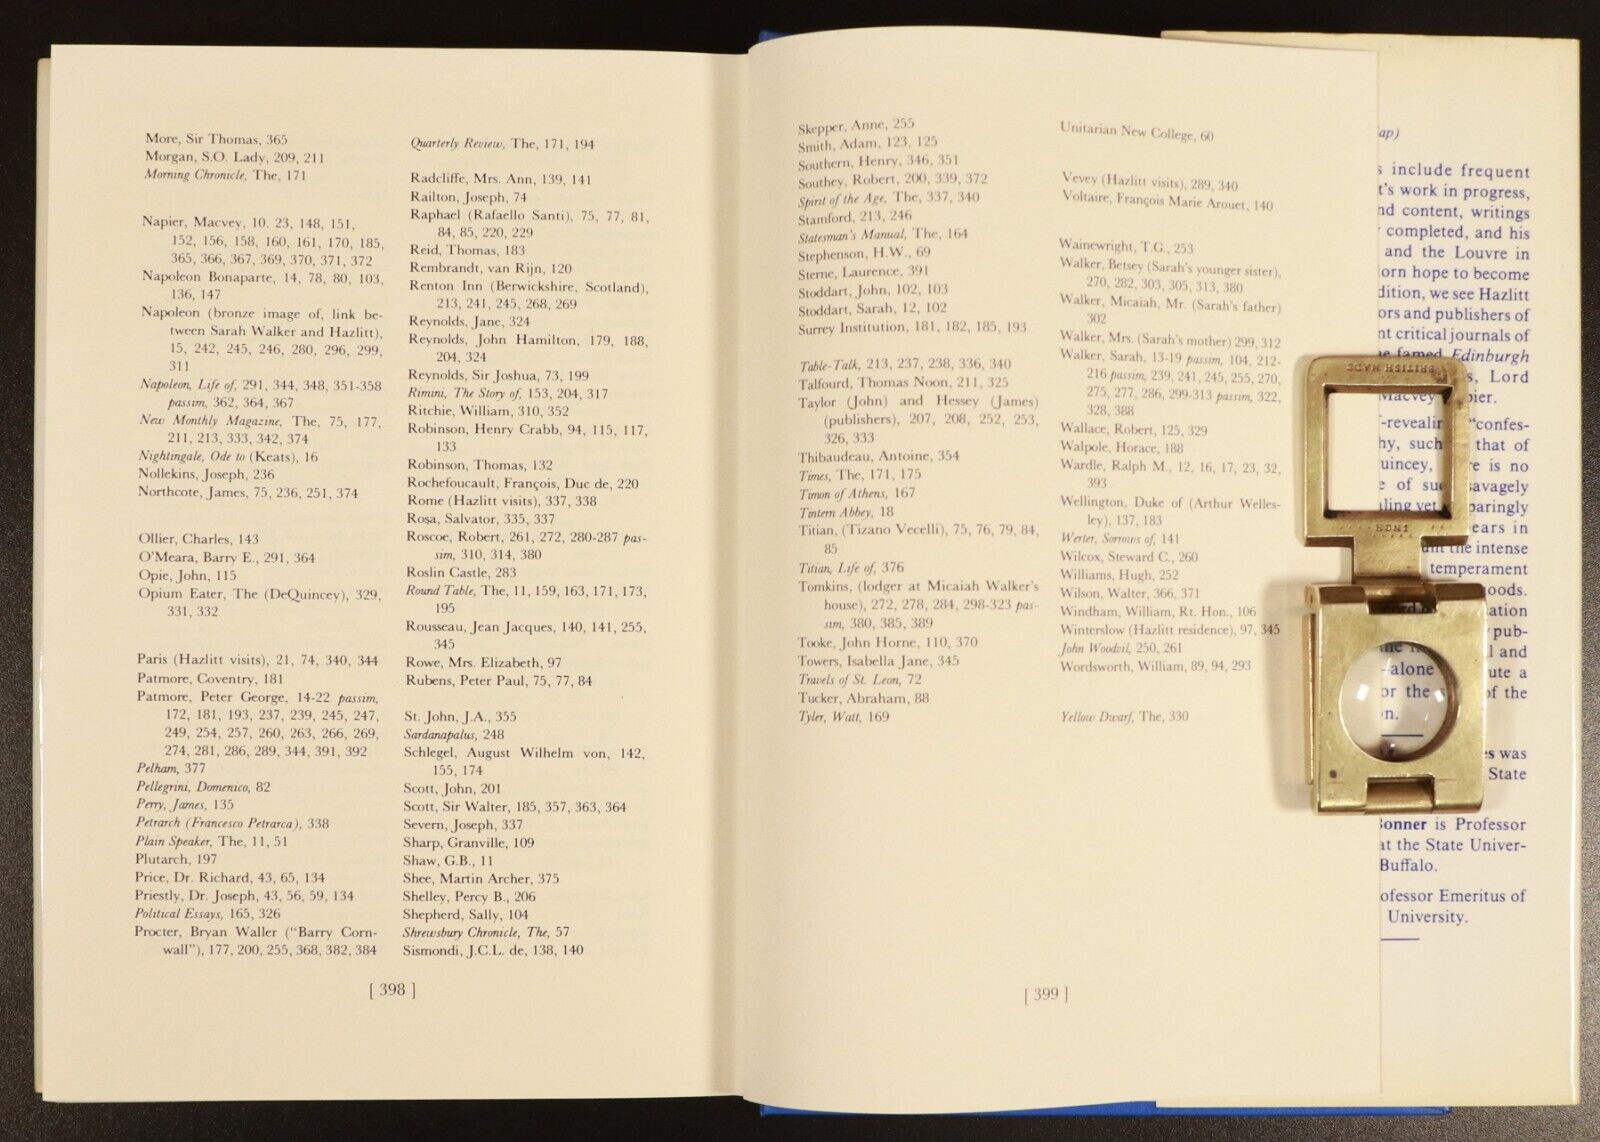 More, Sir Thomas, 365
Morgan, S.O. Lady, 209, 211
Morning Chronicle, The, 171
Napier, Macvey, 10. 23, 148, 151,
152, 156, 158, 160, 161, 170, 185,
365, 366, 367, 369, 370, 371, 372
Napoleon Bonaparte, 14, 78, 80, 103,
136, 147
Napoleon (bronze image of, link be-
tween Sarah Walker and Hazlitt),
15, 242, 245, 246, 280, 296, 299,
311
Napoleon, Life of, 291, 344, 348, 351-358
passim, 362, 364, 367
New Monthly Magazine, The, 75, 177,
211, 213, 333, 342, 374
Nightingale, Ode to (Keats), 16
Nollekins, Joseph, 236
Northcote, James, 75, 236, 251, 374
Ollier, Charles, 143
O'Meara, Barry E., 291, 364
Opie, John, 115
Opium Eater, The (DeQuincey), 329,
331, 332
Paris (Hazlitt visits), 21, 74, 340, 344
Patmore, Coventry, 181
Patmore, Peter George, 14-22 passim,
172, 181, 193, 237, 239, 245, 247,
249, 254, 257, 260, 263, 266, 269,
274, 281, 286, 289, 344, 391, 392
Pelham, 377
Pellegrini, Domenico, 82
Perry, James, 135
Petrarch (Francesco Petrarca), 338
Plain Speaker, The, 11, 51
Plutarch, 197
Price, Dr. Richard, 43, 65, 134
Priestly, Dr. Joseph, 43, 56, 59, 134
Political Essays, 165, 326
Procter, Bryan Waller ("Barry Corn-
wall"), 177, 200, 255, 368, 382, 384
Quarterly Review, The, 171, 194
Radcliffe, Mrs. Ann, 139, 141
Railton, Joseph, 74
Raphael (Rafaello Santi), 75, 77, 81,
84, 85, 220, 229
Reid, Thomas, 183
Rembrandt, van Rijn, 120
Renton Inn (Berwickshire, Scotland),
213, 241, 245, 268, 269
Reynolds, Jane, 324
Reynolds, John Hamilton, 179, 188,
204, 324
Reynolds, Sir Joshua, 73, 199
Rimini, The Story of, 153, 204, 317
Ritchie, William, 310, 352
Robinson, Henry Crabb, 94, 115, 117,
133
Robinson, Thomas, 132
Rochefoucault, François, Duc de, 220
Rome (Hazlitt visits), 337, 338
Rosa, Salvator, 335, 337
Roscoe, Robert, 261, 272, 280-287 pas-
sim, 310, 314, 380
Roslin Castle, 283
Round Table, The, 11, 159, 163, 171, 173,
195
Rousseau, Jean Jacques, 140, 141, 255,
345
Rowe, Mrs. Elizabeth, 97
Rubens, Peter Paul, 75, 77, 84
St. John, J.A., 355
Sardanapalus, 248
Schlegel, August Wilhelm von, 142,
155, 174
Scott, John, 201
Scott, Sir Walter, 185, 357, 363, 364
Severn, Joseph, 337
Sharp, Granville, 109
Shaw, G.B., 11
Shee, Martin Archer, 375
Shelley, Percy B., 206
Shepherd, Sally, 104
Shrewsbury Chronicle, The, 57
Sismondi, J.C.L. de, 138, 140
[ 398 ]
Skepper, Anne, 255
Smith, Adam, 123, 125
Southern, Henry, 346, 351
Southey, Robert, 200, 339, 372
Spirit of the Age, The, 337, 340
Stamford, 213, 246
Statesman's Manual, The, 164
Stephenson, H.W., 69
Sterne, Laurence, 391
Stoddart, John, 102, 103
Stoddart, Sarah, 12, 102
Surrey Institution, 181, 182, 185, 193
Table-Talk, 213, 237, 238, 336, 340
Talfourd, Thomas Noon, 211, 325
Taylor (John) and Hessey (James)
(publishers), 207, 208, 252, 253,
326, 333
Thibaudeau, Antoine, 354
Times, The, 171, 175
Timon of Athens, 167
Tintern Abbey, 18
Titian, (Tizano Vecelli), 75, 76, 79, 84,
85
Titian, Life of, 376
Tomkins, (lodger at Micaiah Walker's
house), 272, 278, 284, 298-323 pas-
sim, 380, 385, 389
Tooke, John Horne, 110, 370
Towers, Isabella Jane, 345
Travels of St. Leon, 72
Tucker, Abraham, 88
Tyler, Watt, 169
Unitarian New College, 60
Vevey (Hazlitt visits), 289, 340
Voltaire, François Marie Arouet, 140
Wainewright, T.G., 253
Walker, Betsey (Sarah's younger sister),
270, 282, 303, 305, 313, 380
Walker, Micaiah, Mr. (Sarah's father)
302
Walker, Mrs. (Sarah's mother) 299, 312
Walker, Sarah, 13-19 passim, 104, 212-
216 passim, 239, 241, 245, 255, 270,
275, 277, 286, 299-313 passim, 322,
328, 388
Wallace, Robert, 125, 329
Walpole, Horace, 188
Wardle, Ralph M., 12, 16, 17, 23, 32,
393
Wellington, Duke of (Arthur Welles-
ley), 137, 183
Werter, Sorrows of, 141
Wilcox, Steward C., 260
Williams, Hugh, 252
Wilson, Walter, 366, 371
Windham, William, Rt. Hon., 106
Winterslow (Hazlitt residence), 97, 345
John Woodvil, 250, 261
Wordsworth, William, 89, 94, 293
Yellow Dwarf, The, 330
[ 399 ]
include frequent
's work in progress,
content, writings
completed, and his
and the Louvre in
hope to become
we see Hazlitt
and publishers of
critical journals of
famed Edinburgh
Lord
Macvey
"confes-
such that of
is no
of savagely
in
the intense
temperament
pub-
and
-alone
or the of the
was
State
Bonner is Professor
at the State Univer-
Buffalo.
Emeritus of
University.
BRITISH MADE
INCH